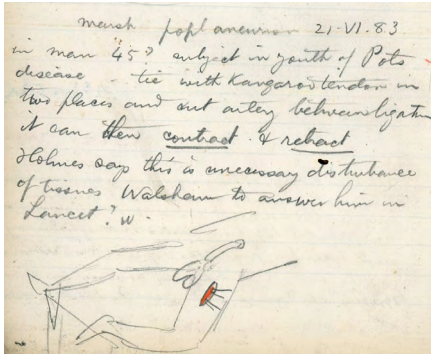 marsh popl aneurism 21-VI.83
in man "45? subject in youth of Pots
disease - tie with Kangaroo tendon in
two places and cut artery between ligature
it can then contract. & retract
Holmes says this is unecessay disturbance
of tissues Walsham to answer him in
Lancet? W.